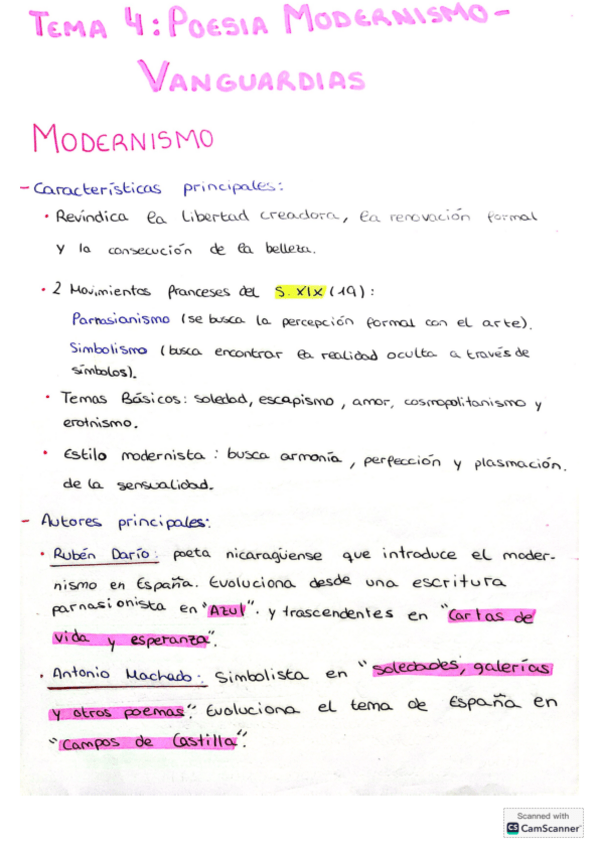 TEMA 4: POESIA MODERNISMO-
VANGUARDIAS
MODERNISMO
- Características principales:
• Revindica la libertad creadora, la renovación formal
y la consecución de la belleza.
• 2 Movimientos franceses del S. XIX (19):
Parnasianismo (se busca la percepción formal con el arte).
Simbolismo (busca encontrar la realidad oculta a través de
símbolos).
• Temas Básicos: soledad, escapismo, amor, cosmopolitanismo y
erotnismo.
• Estilo modernista: busca armonía, perfección y plasmación.
de la sensualidad.
- Autores principales:
• Rubén Darío: poeta nicaragüense que introduce el moder-
nismo en España. Evoluciona desde una escritura
parnasionista en "Azul". y trascendentes en "Cartas de
vida y esperanza".
• Antonio Machado: Simbolista en "soledades, galerías
y otros poemas". Evoluciona el tema de España en
"Campos de Castilla".
Scanned with
CS CamScanner